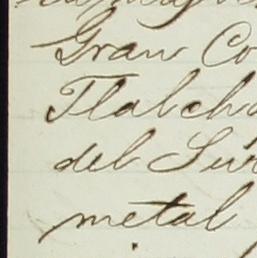 Gran Co
Tlalcho
del Sur
metal